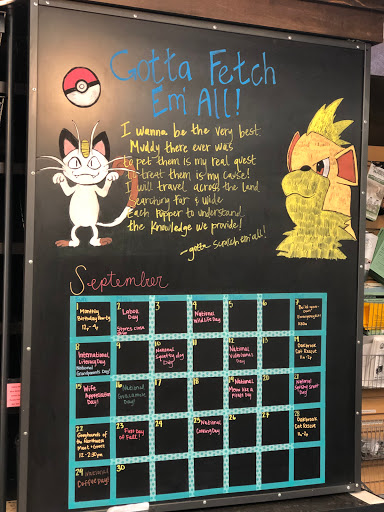 Gotta Fetch
Em' All!
I wanna be the very best
Muddy there ever was
to pet them is my real quest
to treat them is my cause!
I will travel across the land
Searching far & wide
Each Pupper to understand
the Knowledge we provide!
-gotta scratch em' all!
September
Monthly
Birthday Party
12-4p
2 Labor
Day
Stores close
3
4
National
Wildlife Day
5
6
Build-your-own
8
International
Literacy Day
National
Grandparents Day!
9
10
National
Day
11
12
National
Day!
13
14
Oakbrook
Cat Rescue
11-2p
15
Wife
Appreciation
Day!
16
National
Guacamole
Day!
17
18
19
National
Meow like a
Pirate Day
20
21
National
Day!
22
Greyhounds of
the Northwest
Meet + Greet
12-2:30pm
23
First Day
of Fall!
24
25
National
Day!
26
27
28
Oakbrook
Cat Rescue
11-2p
29
National
Coffee Day!
30